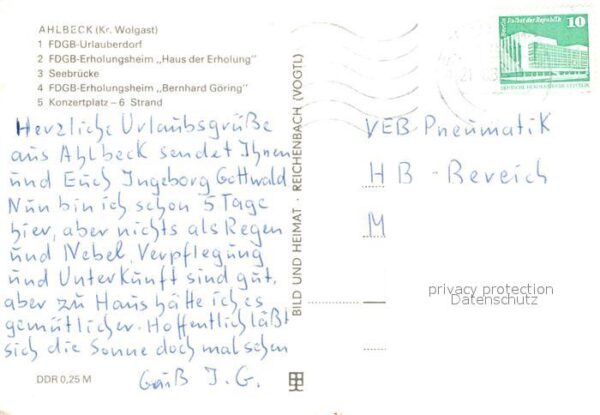 AHLBECK (Kr. Wolgast)
1 FDGB-Urlauberdorf
2 FDGB-Erholungsheim „Haus der Erholung"
3 Seebrücke
4 FDGB-Erholungsheim „Bernhard Göring"
5 Konzertplatz – 6 Strand
Herzliche Urlaubsgrüße
aus Ahlbeck sendet Ihnen
und Euch Ingeborg Gottwald
Nun bin ich schon 5 Tage
hier, aber nichts als Regen
und Nebel, Verpflegung
und Unterkunft sind gut,
aber zu Haus hätte ich es
gemütlicher. Hoffentlich läßt
sich die Sonne doch mal sehen
Gruß I. G.
DDR 0,25 M
BILD UND HEIMAT · REICHENBACH (VOGTL)
Palast der Republik
10
DEUTSCHE DEMOKRATISCHE REPUBLIK
VEB Pneumatik
HB - Bereich
M
privacy protection
Datenschutz